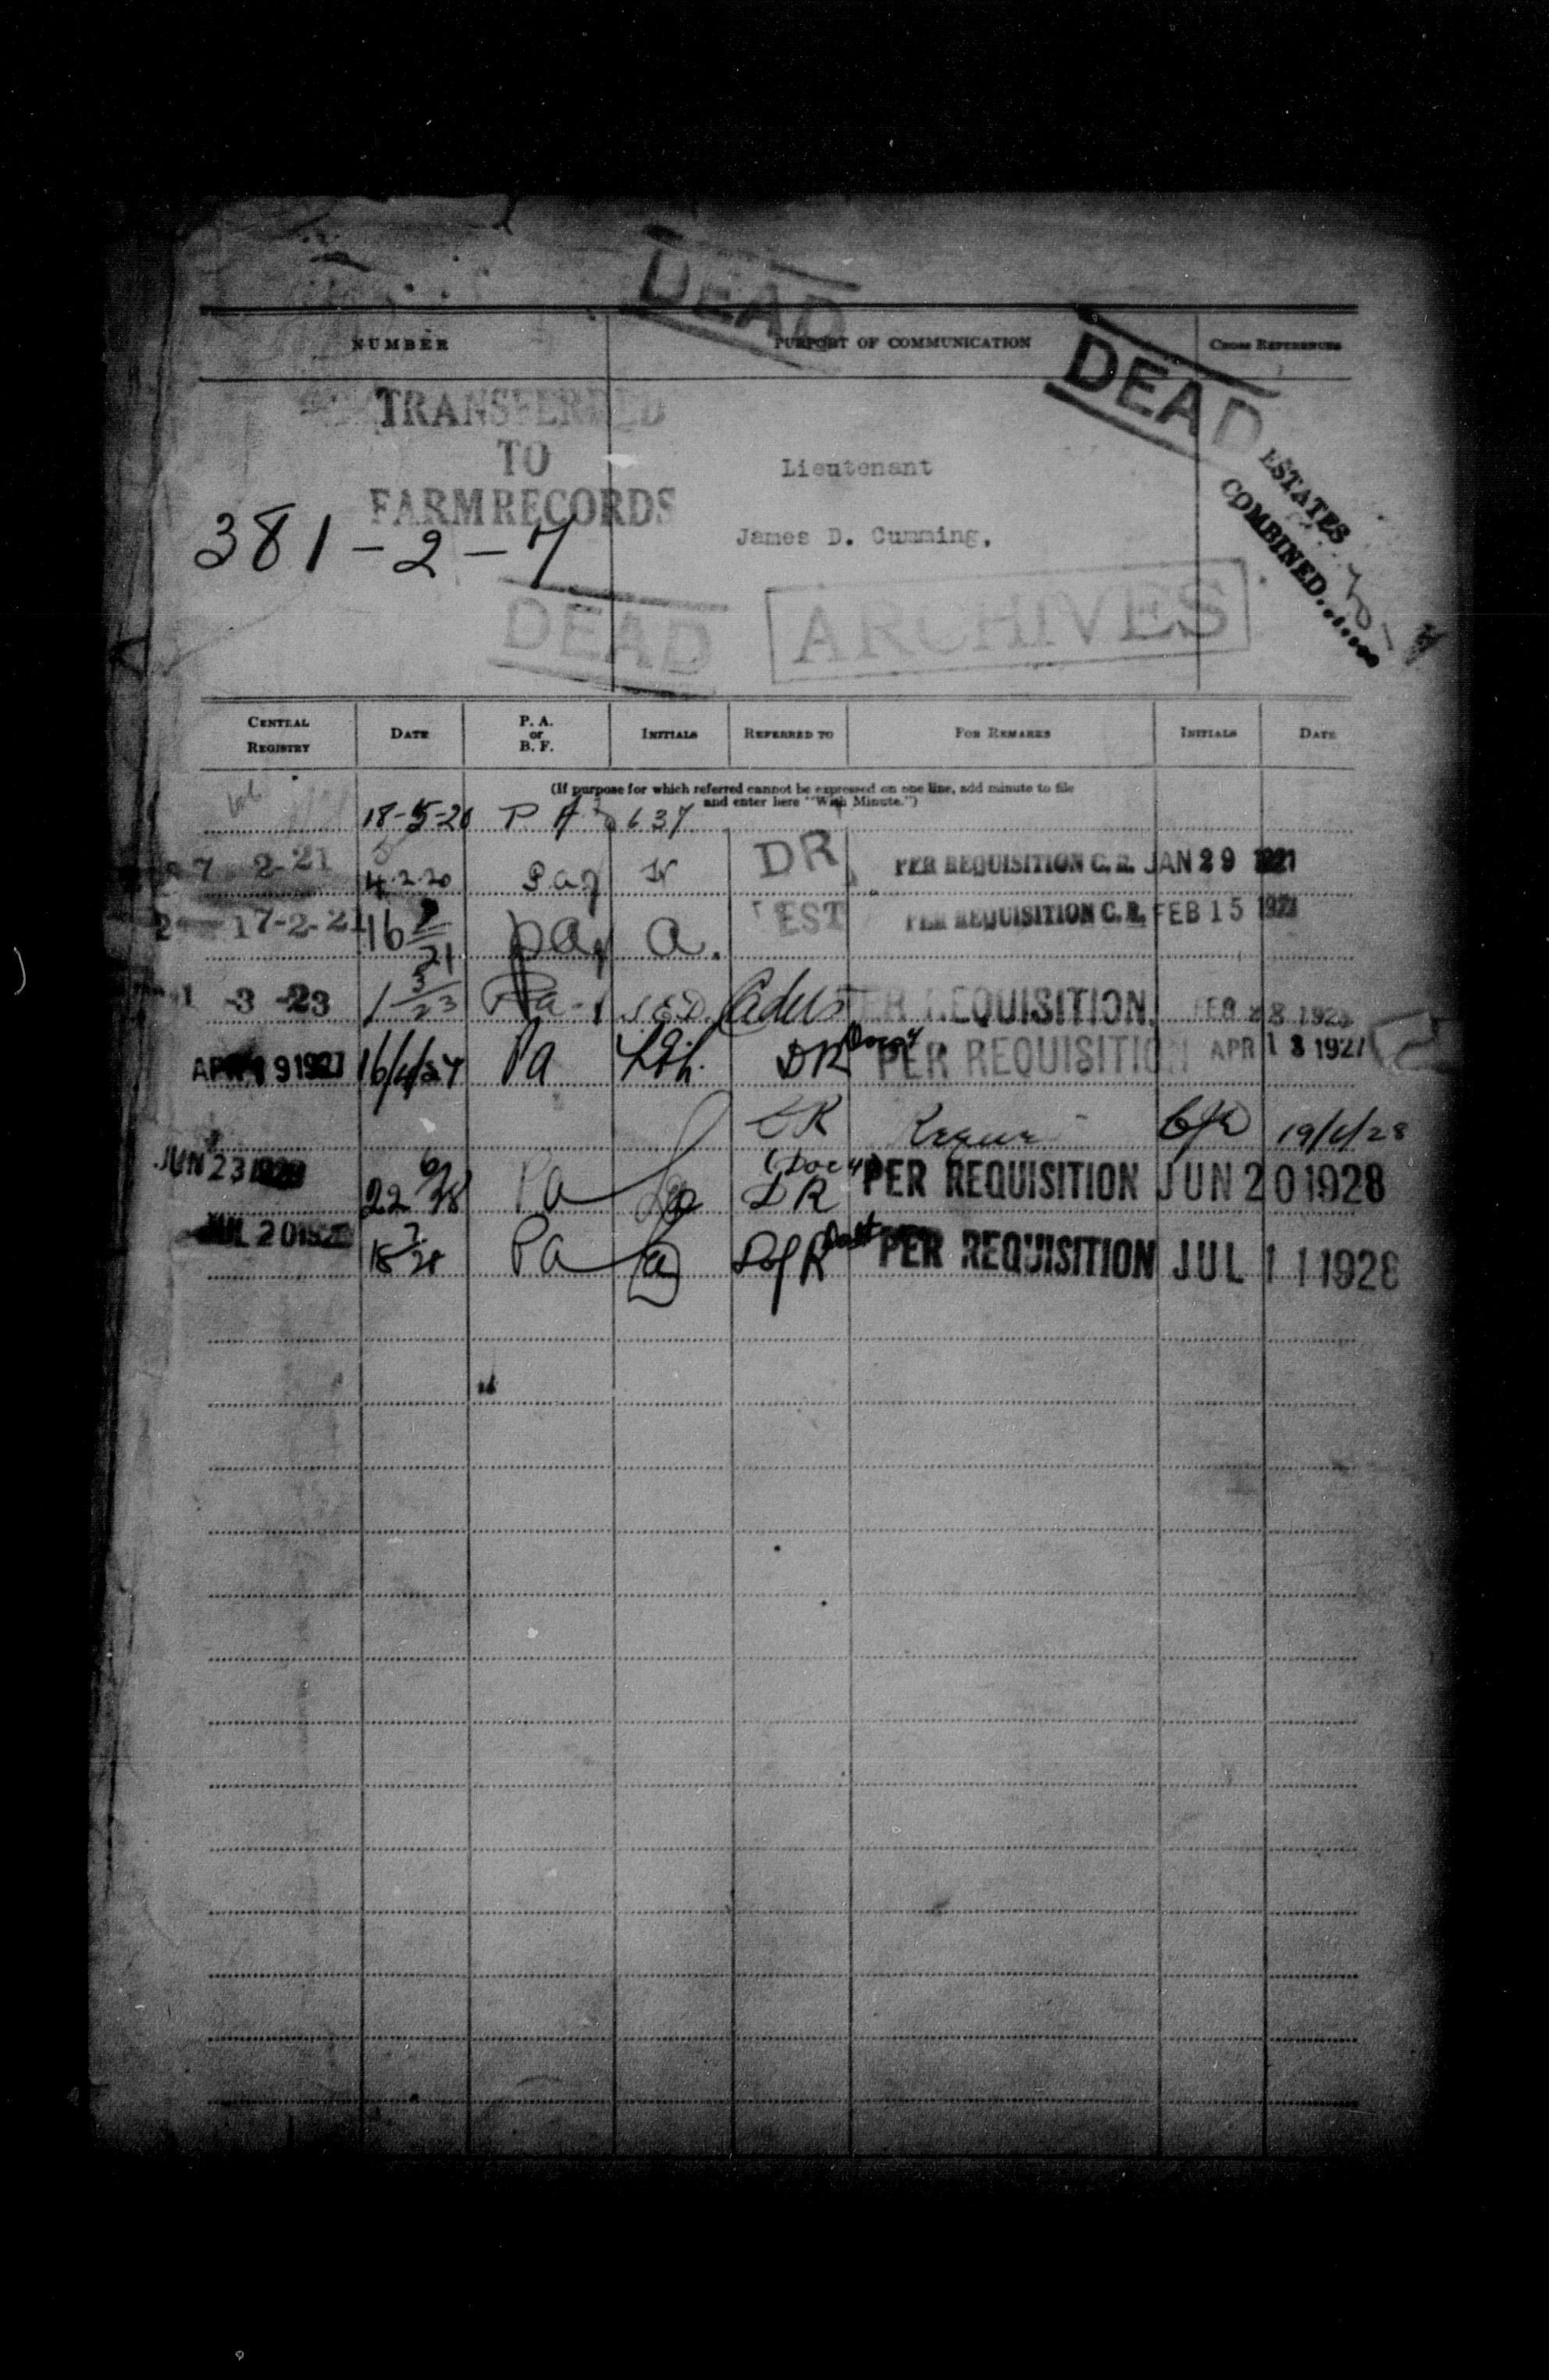 DEAD
NUMBER PURPORT OF COMMUNICATION CROSS REFERENCES
DEAD
TRANSFERRED
TO
FARM RECORDS
Lieutenant
ESTATES
COMBINED.......
381-2-7
James D. Cumming.
DEAD ARCHIVES
CENTRAL REGISTRY DATE P. A. or B. F. INITIALS REFERRED TO FOR REMARKS INITIALS DATE
(If purpose for which referred cannot be expressed on one line, add minute to file
and enter here "With Minute.")
18-5-20 P A 637
7 2-21 4.2.20 Pay DR PER REQUISITION C. R. JAN 29 1921
17-2-21 16 2/21 pay a. EST PER REQUISITION C. R. FEB 15 1921
1 -3 -23 1 3/23 Pa PER REQUISITION. FEB 28 1923
APR 19 1927 16/4/27 Pa DR PER REQUISITION APR 13 1927
DR 19/6/28
JUN 23 1928 22 6/28 Pa DR PER REQUISITION JUN 20 1928
JUL 20 1928 18 7/28 Pa D of R PER REQUISITION JUL 11 1928